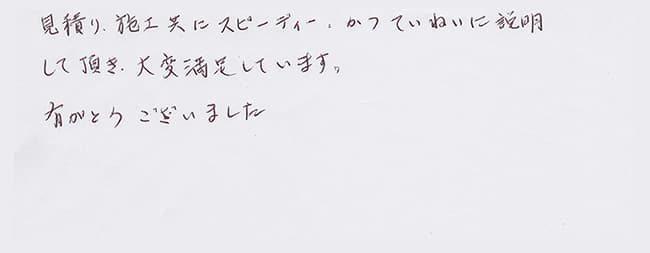 見積り、施工共にスピーディー、かつていねいに説明
して頂き、大変満足しています。
有がとう ございました